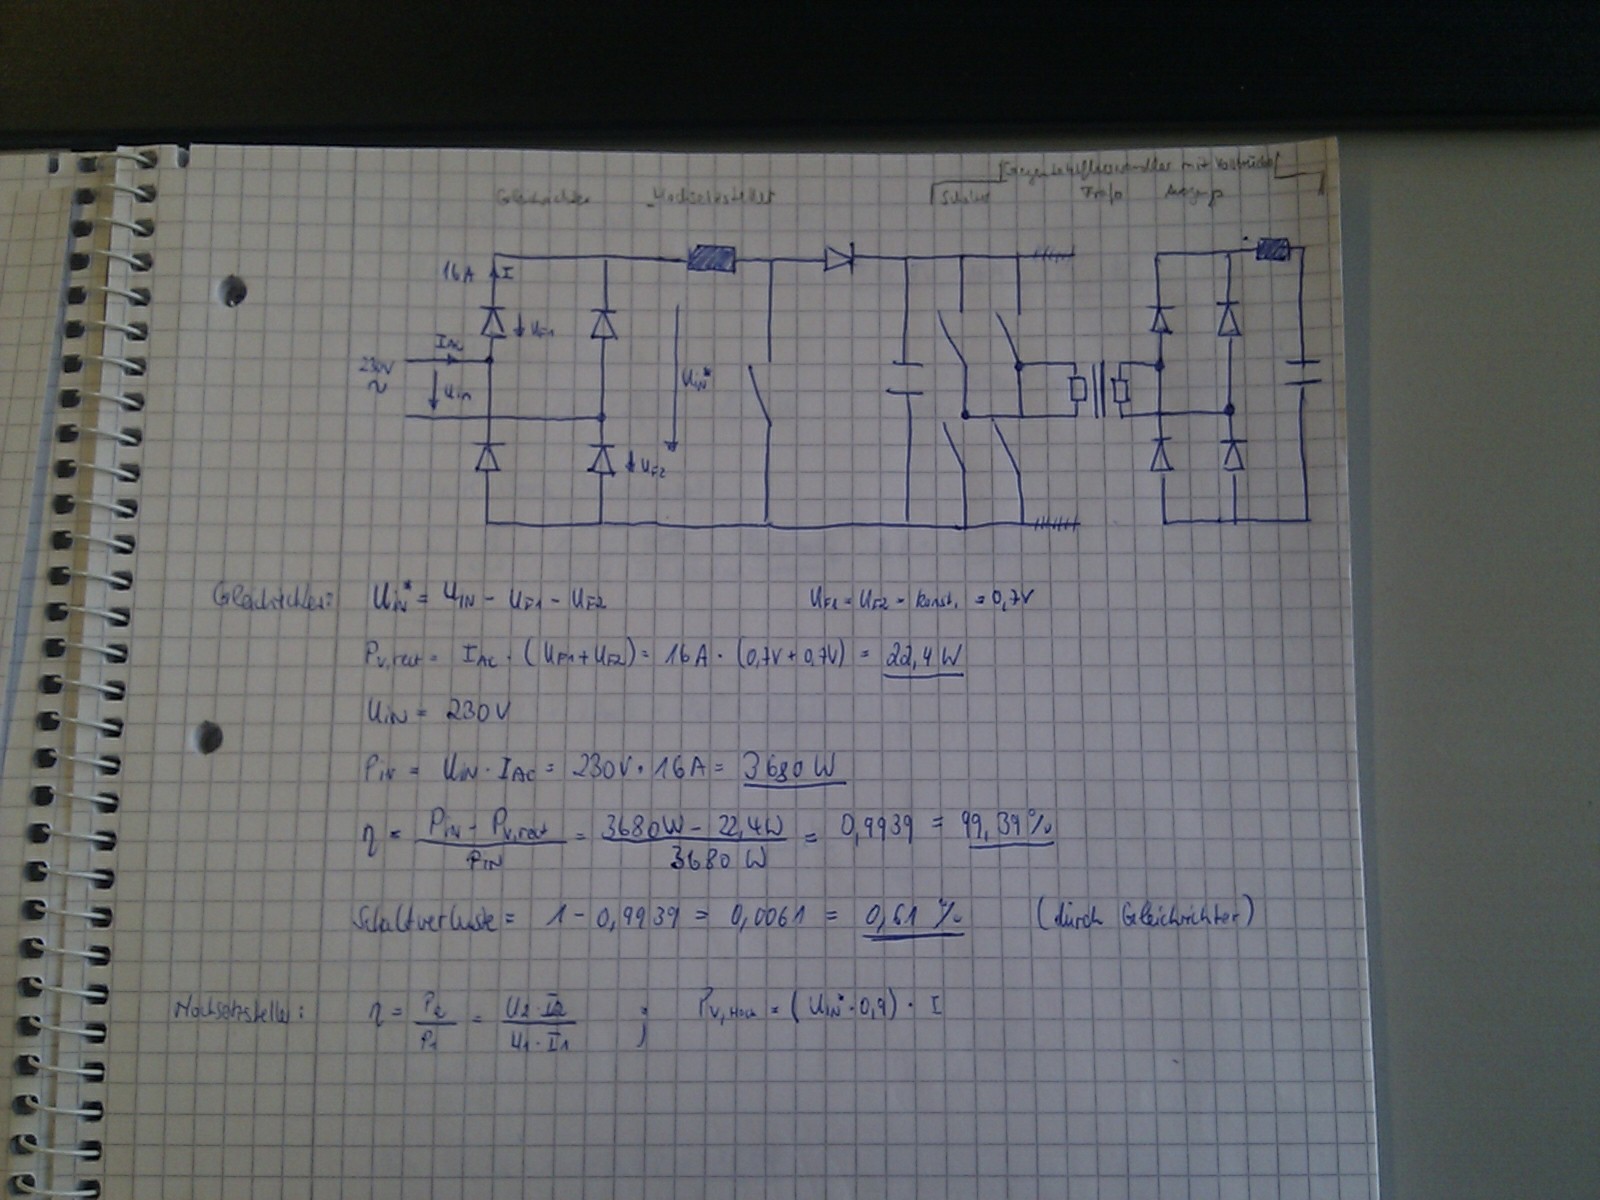 Gegentaktflusswandler mit Vollbrücke
Gleichrichter Hochsetzsteller Trafo
16A I
UF1
IAC
230V
~
Uin
Uin*
UF2
Gleichrichter: Uin* = UIN - UF1 - UF2 UF1 = UF2 = konst. = 0,7V
Pv,rect = IAC · (UF1 + UF2) = 16A · (0,7V + 0,7V) = 22,4 W
UiN = 230V
PiN = UiN · IAC = 230V · 16A = 3680 W
η = PiN - Pv,rect / PIN = 3680W - 22,4W / 3680 W = 0,9939 = 99,39%
Schaltverluste = 1 - 0,9939 = 0,0061 = 0,61 % (durch Gleichrichter)
Hochsetzsteller: η = P2 / P1 = U2 · I2 / U1 · I1 ; Pv,Hoch = (UIN* · 0,9) · I